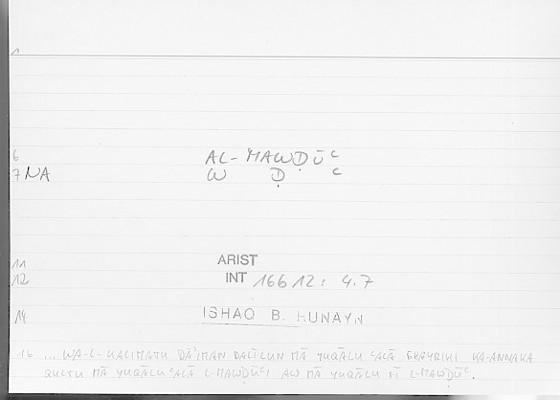 1
6 AL-MAWḌŪʿ
7 NA W Ḍ ʿ
11 ARIST
12 INT 16612: 4.7
14 ISHAQ B. HUNAYN
16 ... WA-L-KALIMATU DĀʾIMAN DALĪLUN MĀ YUQĀLU ʿALĀ ĠHAYRIHI KA-ANNAKA
QULTU MĀ YUQĀLU ʿALĀ L-MAWḌŪʿI AW MĀ YUQĀLU FĪ L-MAWḌŪʿ.